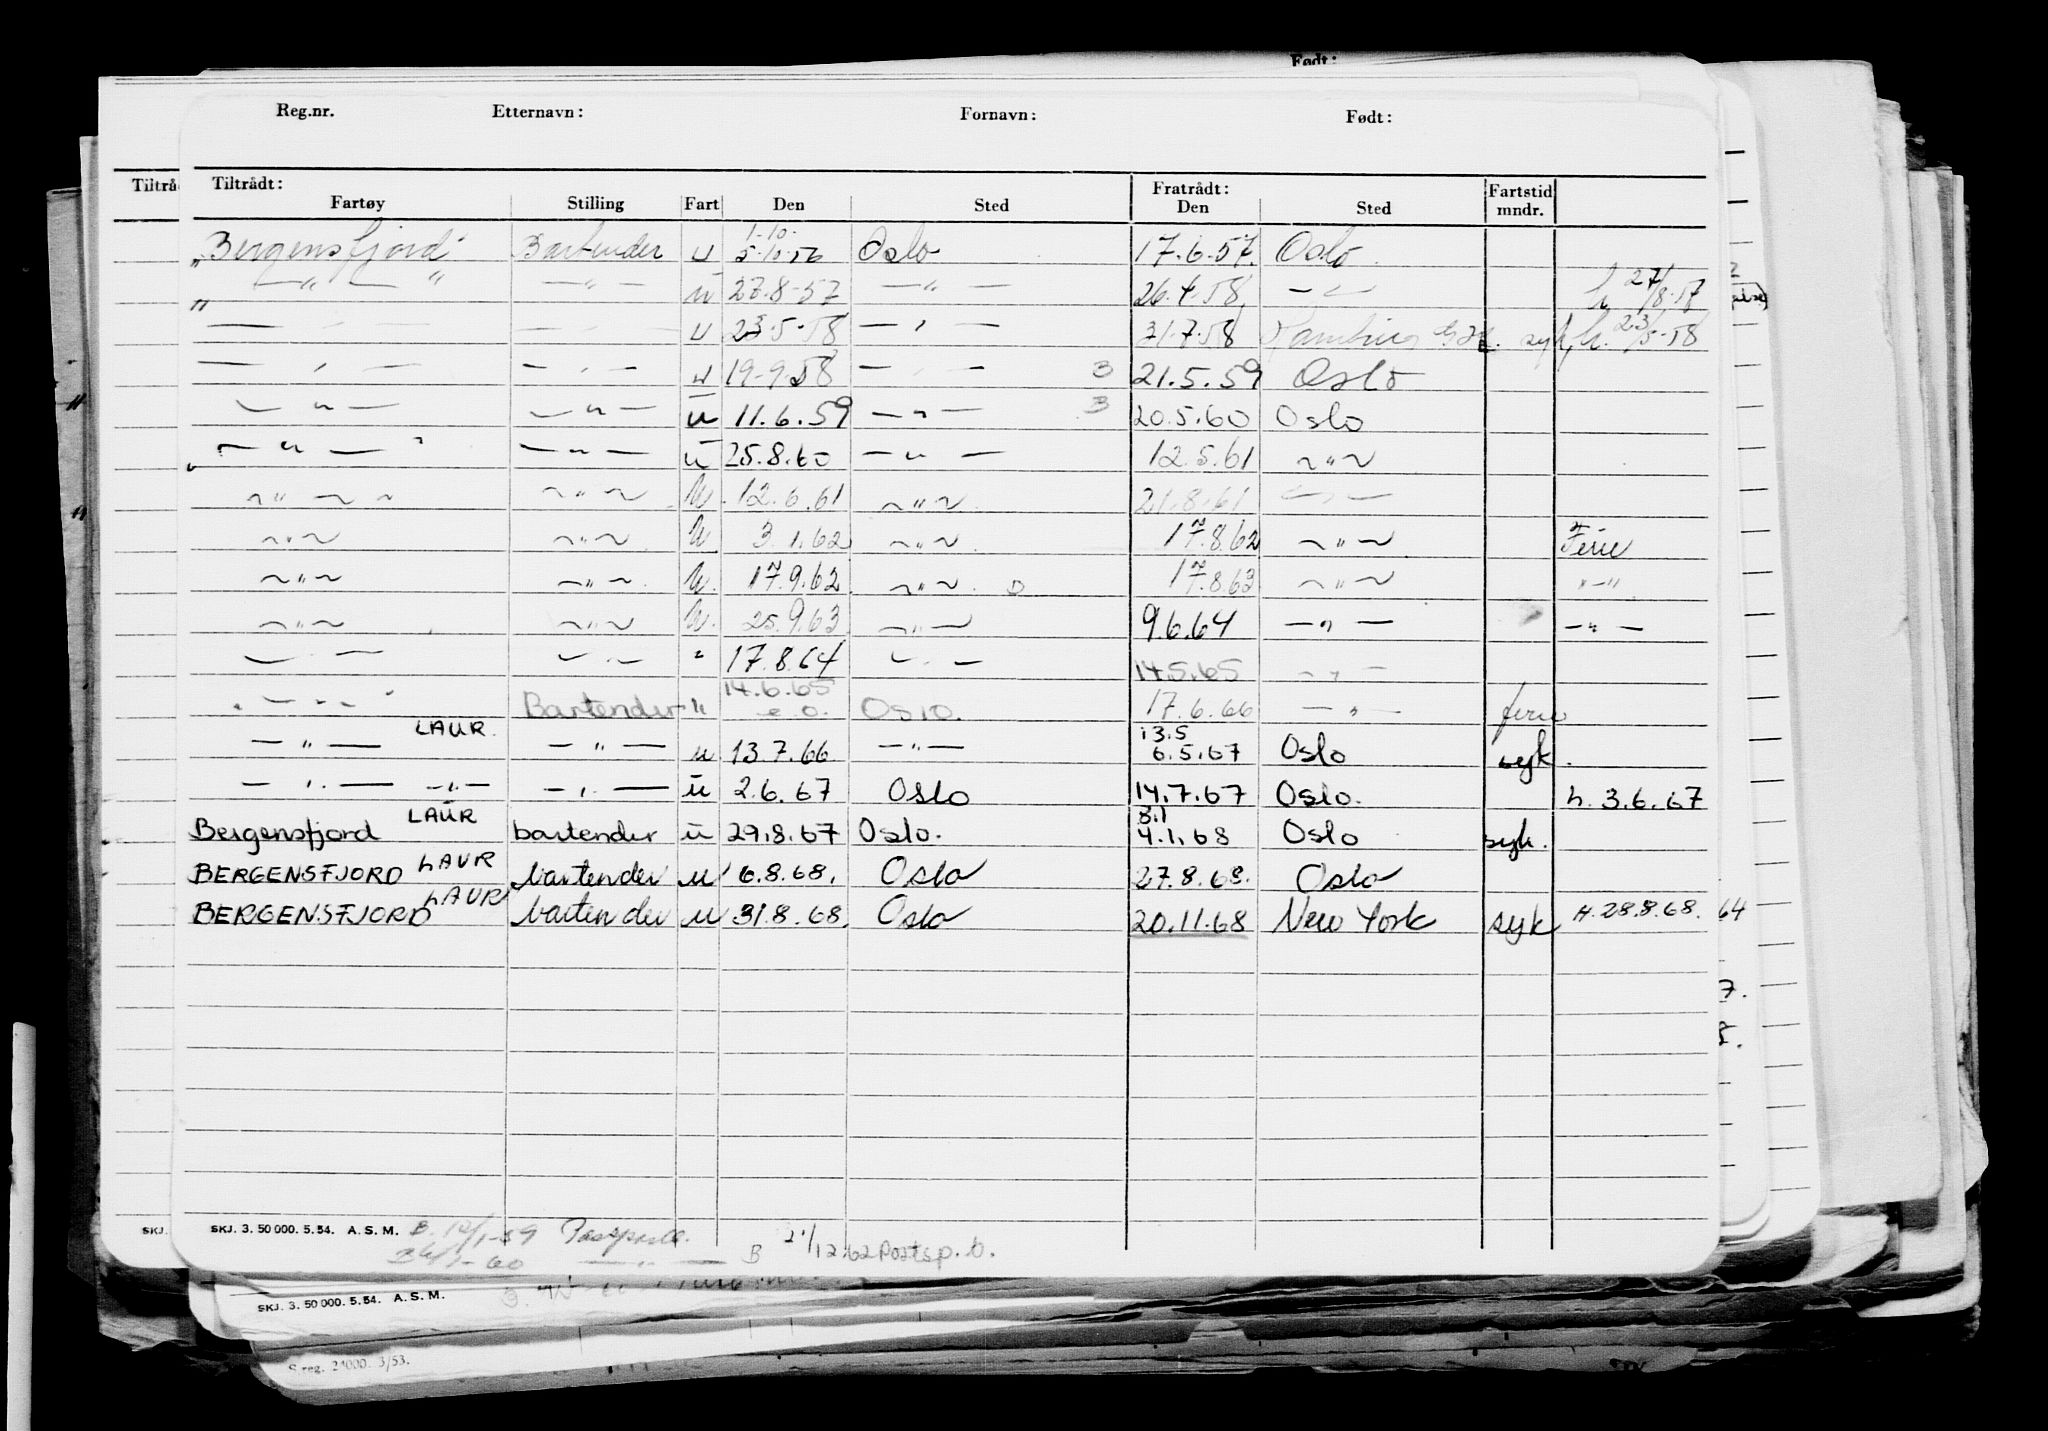 Født:
Reg.nr. Etternavn: Fornavn: Født:
Tiltrå Tiltrådt: Fratrådt: Fartstid
Fartøy Stilling Fart Den Sted Den Sted mndr.
1.10.
„Bergensfjord" Bartender u 5.10.56 Oslo 17.6.57. Oslo.
— " — " — " — ū 27.8-57 — " — 26.4.58, — " — h 27/8.57
— — — — u 23.5-58 — " — 31.7.58 syk, h. 23/5-58
— " — — " — u 19-9-58 — " — B 21.5.59 Oslo
— " — — " — ū 11.6.59 — " — B 20.5.60 Oslo
— " — " — " — ū 25.8.60 — " — 12.5.61 ~ " ~
~ " ~ " ~ " ~ U. 12.6.61 ~ " ~ 21.8.61 — " —
~ " ~ ~ " ~ U 3.1.62 ~ " ~ 17.8.62 ~ " ~ Ferie
~ " ~ ~ " ~ U. 17.9.62 ~ " ~ D 17.8.63 ~ " ~ " — "
~ " ~ ~ " ~ U. 25.9.63 ~ " — 9.6.64 — " — — " —
— " — — " — " 17.8.64 — " — 14.5.65 — " —
14.6.65
— " — " Bartender " Oslo. 17.6.66 — " — ferie
LAUR. 13.5
— " — — " — u 13.7.66 — " — 6.5.67 Oslo syk.
— " — — " — — " — ū 2.6.67 Oslo 14.7.67 Oslo. h. 3.6.67
LAUR 3.1
Bergensfjord bartender ū 29.8.67 Oslo. 4.1.68 Oslo syk.
BERGENSFJORD LAUR bartender u 6.8.68. Oslo 27.8.68. Oslo
BERGENSFJORD LAUR bartender u 31.8.68. Oslo 20.11.68 New York syk H.28.8.68. 64
7.
8.
SKJ. SKJ. 3. 50 000. 5. 54. A. S. M. B. 12/1-59
— " — B 21/12.62 Postsp.b.
SKJ. 3. 50 000. 5. 54. A. S. M.
S reg. 24000. 3/53.